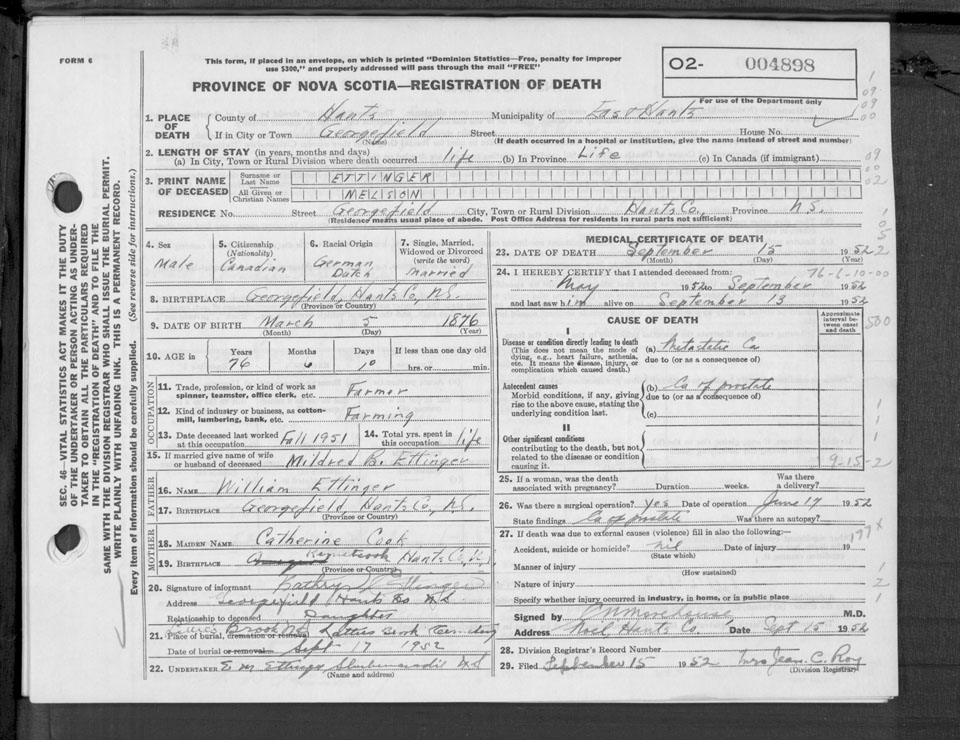 FORM 6
This form, if placed in an envelope, on which is printed "Dominion Statistics—Free, penalty for improper
use $300," and properly addressed will pass through the mail "FREE"
PROVINCE OF NOVA SCOTIA—REGISTRATION OF DEATH
O2- 004898
For use of the Department only
SEC. 46—VITAL STATISTICS ACT MAKES IT THE DUTY
OF THE UNDERTAKER OR PERSON ACTING AS UNDER-
TAKER TO OBTAIN ALL THE PARTICULARS REQUIRED
IN THE "REGISTRATION OF DEATH" AND TO FILE THE
SAME WITH THE DIVISION REGISTRAR WHO SHALL ISSUE THE BURIAL PERMIT.
WRITE PLAINLY WITH UNFADING INK. THIS IS A PERMANENT RECORD.
Every item of information should be carefully supplied. (See reverse side for instructions.)
1. PLACE OF DEATH
County of Hants Municipality of East Hants
If in City or Town Georgefield Street House No.
(Name) (If death occurred in a hospital or institution, give the name instead of street and number)
2. LENGTH OF STAY (in years, months and days)
(a) In City, Town or Rural Division where death occurred life (b) In Province Life (c) In Canada (if immigrant)
3. PRINT NAME OF DECEASED
Surname or Last Name ETTINGER
All Given or Christian Names NELSON
RESIDENCE No. Street Georgefield City, Town or Rural Division Hants Co., Province N.S.
(Residence means usual place of abode. Post Office Address for residents in rural parts not sufficient)
4. Sex Male
5. Citizenship (Nationality) Canadian
6. Racial Origin German Dutch
7. Single, Married, Widowed or Divorced (write the word) Married
8. BIRTHPLACE Georgefield, Hants Co, N.S.
(Province or Country)
9. DATE OF BIRTH March 5 1876
(Month) (Day) (Year)
10. AGE in Years 76 Months 6 Days If less than one day old hrs. or min.
OCCUPATION
11. Trade, profession, or kind of work as spinner, teamster, office clerk, etc. Farmer
12. Kind of industry or business, as cotton-mill, lumbering, bank, etc. Farming
13. Date deceased last worked at this occupation Fall 1951 14. Total yrs. spent in this occupation life
15. If married give name of wife or husband of deceased Mildred B. Ettinger
FATHER
16. NAME William Ettinger
17. BIRTHPLACE Georgefield, Hants Co., N.S.
(Province or Country)
MOTHER
18. MAIDEN NAME Catherine Cook
19. BIRTHPLACE Hants Co.,
(Province or Country)
20. Signature of informant Kathryn Ettinger
Address Georgefield Hants Co N.S
Relationship to deceased Daughter
21. Place of burial, cremation or removal
Date of burial or removal Sept 17 1952
22. UNDERTAKER E. M. Ettinger Shubenacadie N.S
(Name and address)
MEDICAL CERTIFICATE OF DEATH
23. DATE OF DEATH September 15 1952
(Month) (Day) (Year)
24. I HEREBY CERTIFY that I attended deceased from: 76-6-10-00
May 1952 to September 1952
and last saw him alive on September 13 1952
CAUSE OF DEATH
Approximate interval between onset and death
I
Disease or condition directly leading to death
(This does not mean the mode of dying, e.g., heart failure, asthenia, etc. It means the disease, injury, or complication which caused death.)
(a) Metastatic Ca
due to (or as a consequence of)
Antecedent causes
Morbid conditions, if any, giving rise to the above cause, stating the underlying condition last.
(b) Ca of prostate
due to (or as a consequence of)
(c)
II
Other significant conditions contributing to the death, but not related to the disease or condition causing it.
9-15-2
25. If a woman, was the death associated with pregnancy? Duration weeks. Was there a delivery?
26. Was there a surgical operation? Yes Date of operation June 17 1952
State findings Ca of prostate Was there an autopsy?
27. If death was due to external causes (violence) fill in also the following:—
Accident, suicide or homicide? nil Date of injury 19
(State which)
Manner of injury
(How sustained)
Nature of injury
Specify whether injury occurred in industry, in home, or in public place
Signed by M.D.
Address Noel Hants Co. Date Sept 15 1952
28. Division Registrar's Record Number
29. Filed September 15 1952 Mrs Jean. C. Roy
(Division Registrar)